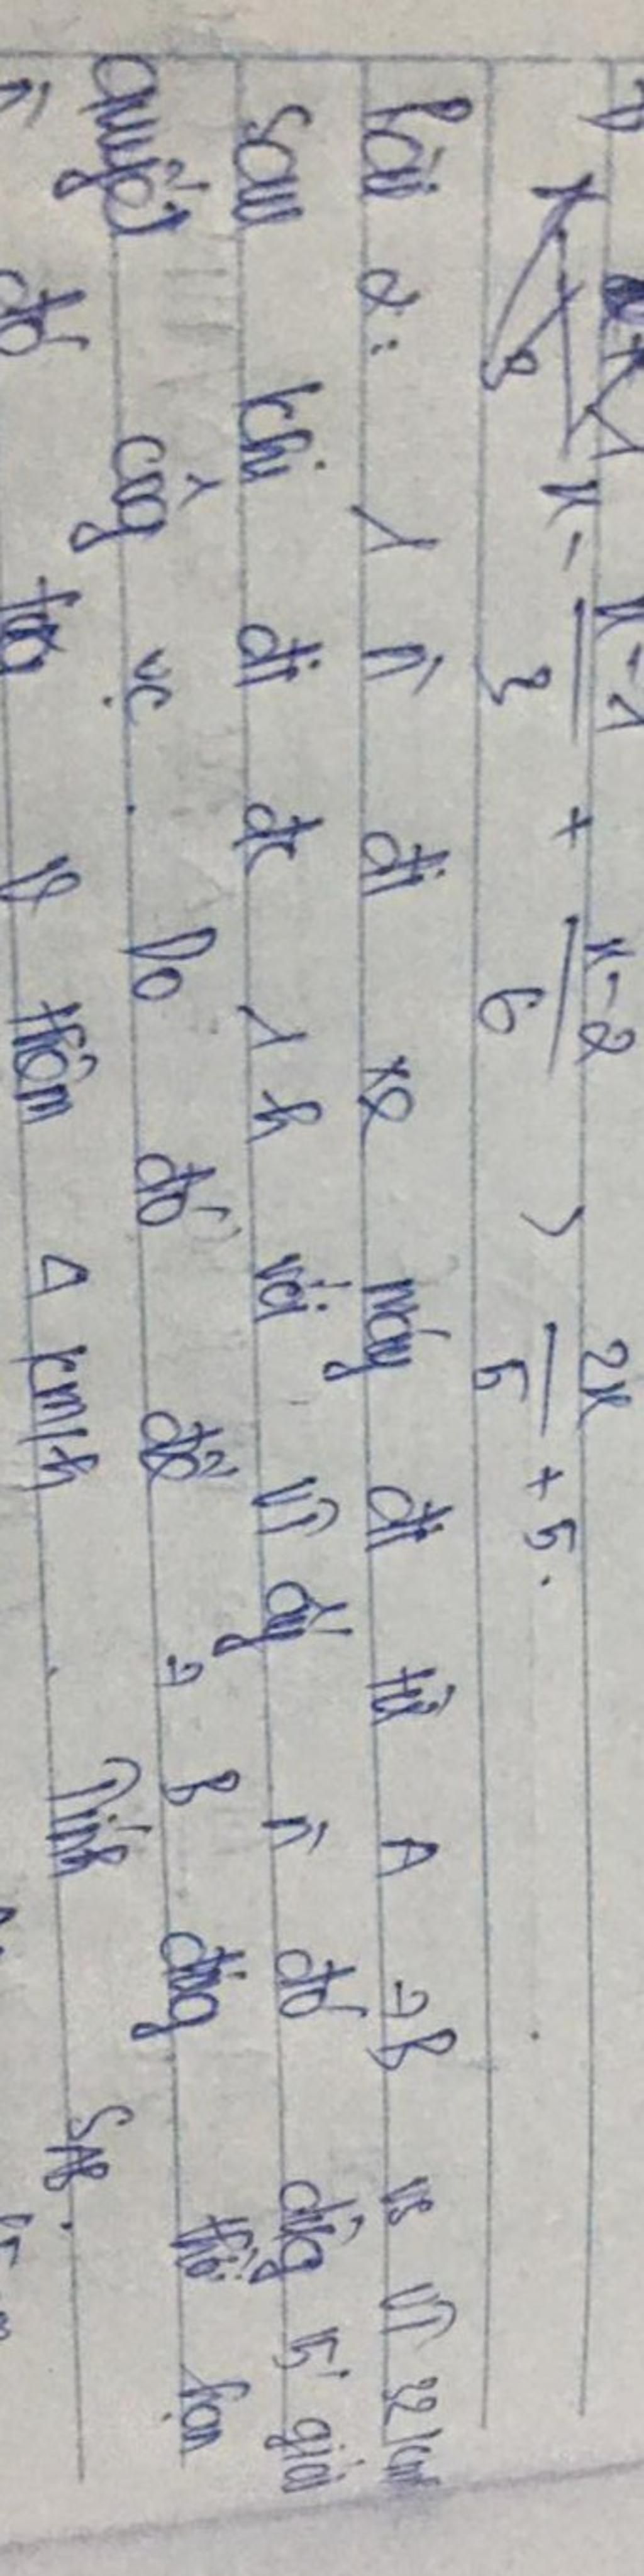 x - x-1/3 + x-2/6 > 2x/5 + 5.
Bài 2: 1 n` đi xe máy đi từ A → B vs vT 32 km
sau khi đi đc 1 h với vT ấy n` đó dừng 15' giải
quyết côg vc. Do đó để → B đúg thời hạn
n` đó tăg v thêm 4 km/h. Tính SAB.